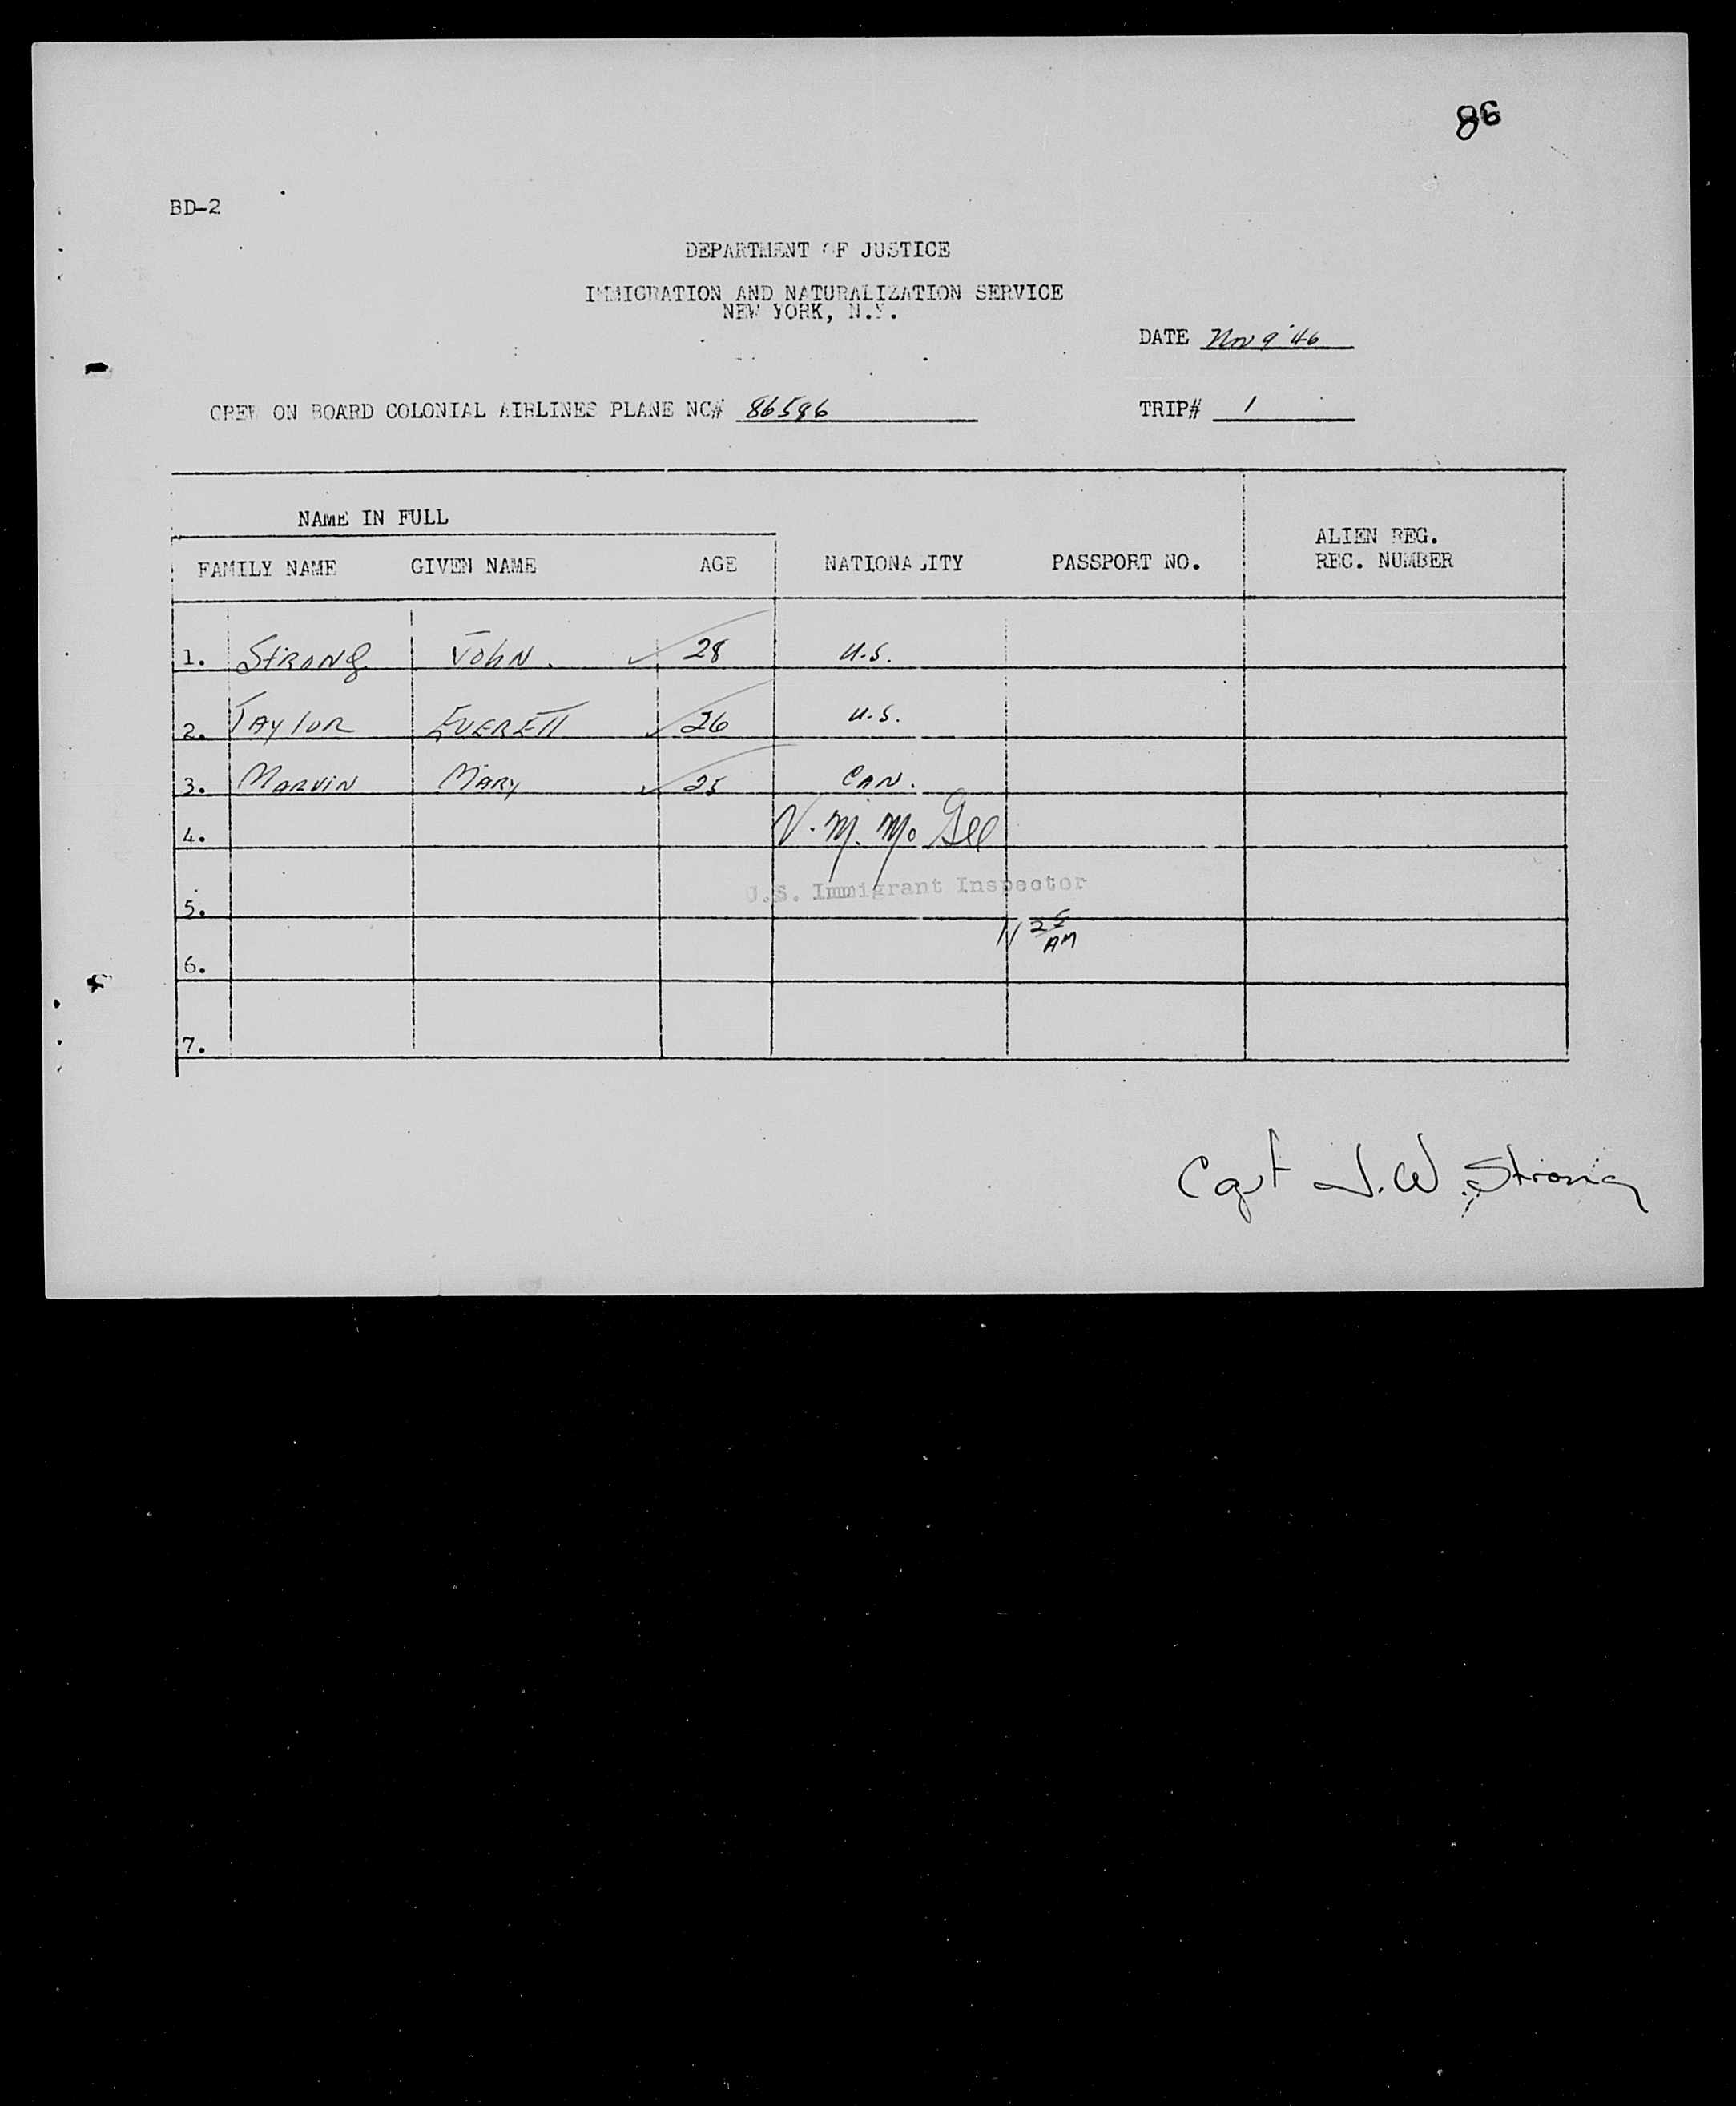 86
BD-2
DEPARTMENT OF JUSTICE
IMMIGRATION AND NATURALIZATION SERVICE
NEW YORK, N.Y.
DATE Nov 9 '46
CREW ON BOARD COLONIAL AIRLINES PLANE NC# 86596
TRIP# 1
NAME IN FULL
FAMILY NAME GIVEN NAME AGE NATIONALITY PASSPORT NO. ALIEN REG. REC. NUMBER
1. STRONG JOHN. 28 U.S.
2. TAYLOR EVERETT 26 U.S.
3. MARVIN MARY 25 CAN.
4. V. M. Mc Gee
U.S. Immigrant Inspector
5.
11 25 AM
6.
7.
Capt J.W. Strong